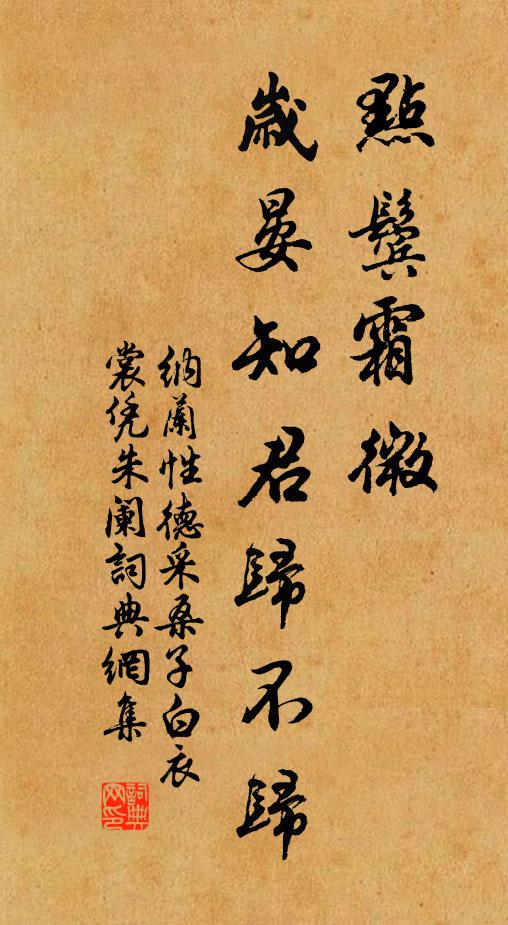 點鬢霜微
歲晏知君歸不歸
納蘭性德采桑子白衣
裳凭朱闌詞典網集
詞典網印